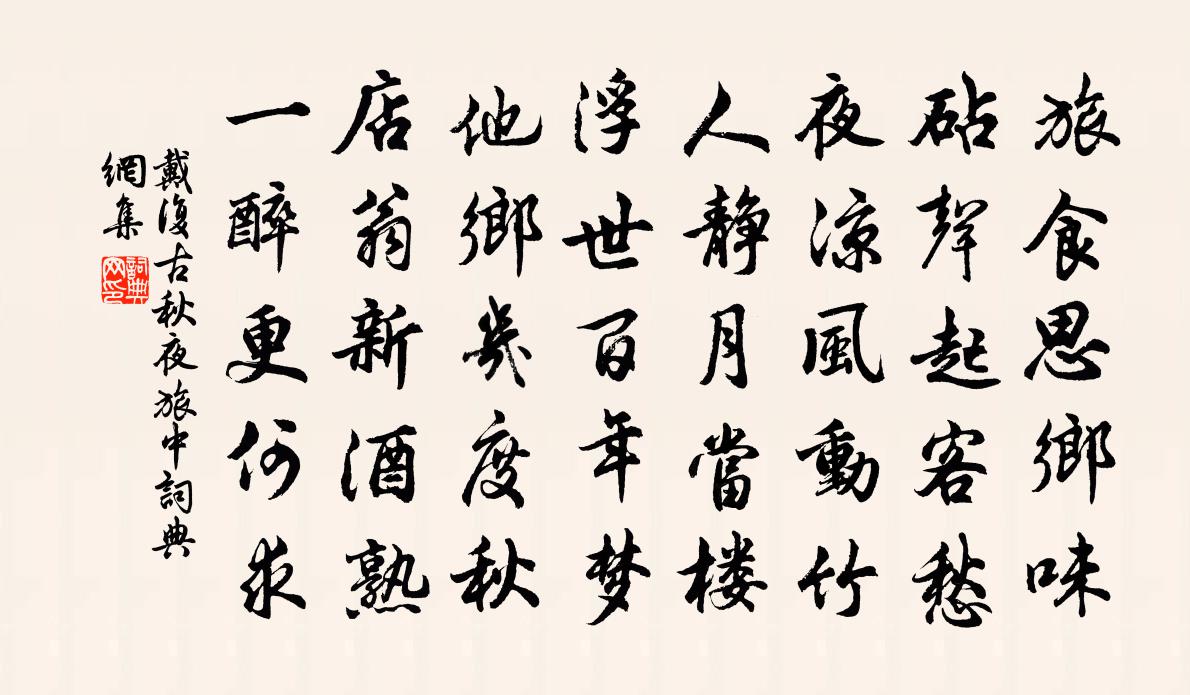 旅食思鄉味
砧聲起客愁
夜涼風動竹
人靜月當楼
浮世百年梦
他鄉幾度秋
店翁新酒熟
一醉更何求
戴復古秋夜旅中詞典
網集
詞典
网印